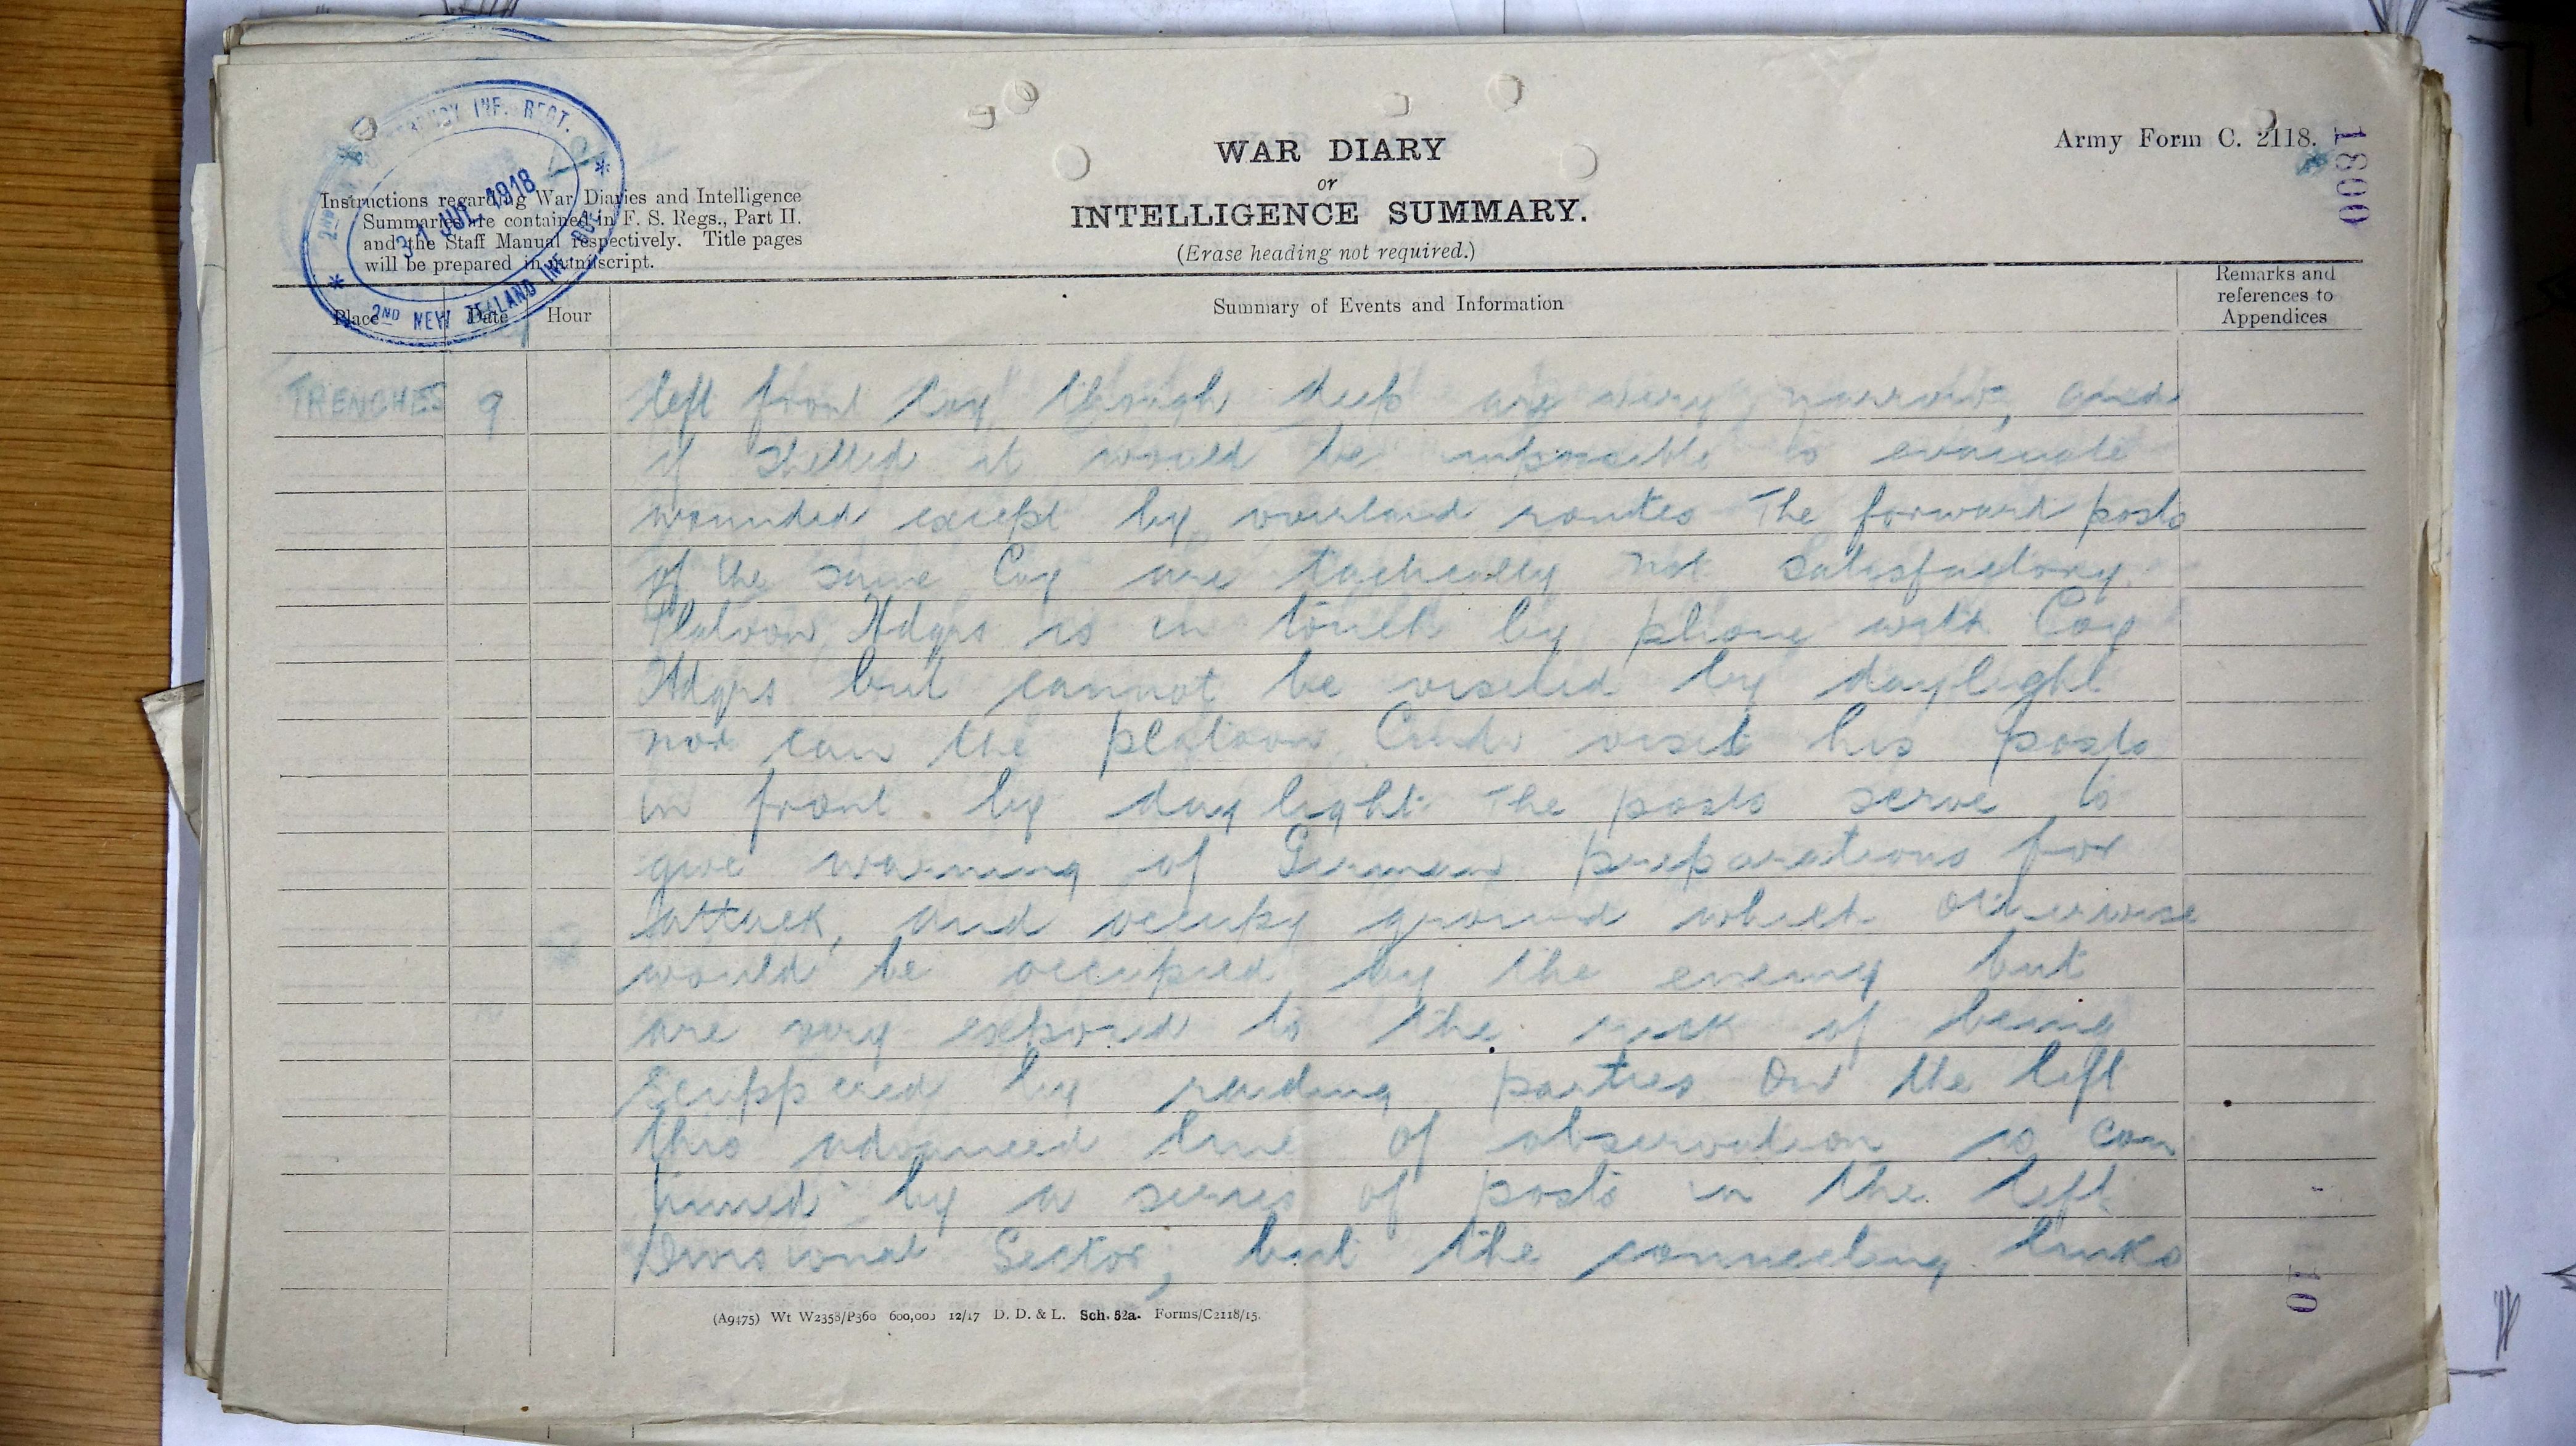 INF. REGT.
31 JUL 1918
2ND NEW ZEALAND INF. BDE.
Instructions regarding War Diaries and Intelligence
Summaries are contained in F. S. Regs., Part II.
and the Staff Manual respectively. Title pages
will be prepared in manuscript.
WAR DIARY
or
INTELLIGENCE SUMMARY.
(Erase heading not required.)
Army Form C. 2118.
1800
Place Date Hour Summary of Events and Information
Remarks and
references to
Appendices
TRENCHES 9 left front Coy though deep are very narrow, and
if shelled it would be impossible to evacuate
wounded except by overland routes The forward posts
of the same Coy are tactically not satisfactory.
Platoon Hdqrs is in touch by phone with Coy
Hdqrs but cannot be visited by daylight
nor can the platoon Cmdr visit his posts
in front by daylight. The posts serve to
give warning of German preparations for
attack, and occupy ground which otherwise
would be occupied by the enemy but
are very exposed to the risk of being
scuppered by raiding parties On the left
this advanced line of observation is con
tinued by a series of posts in the left
Divisional Sector, but the connecting links
(A9475) Wt W2358/P360 600,000 12/17 D. D. & L. Sch. 52a. Forms/C2118/15.
10